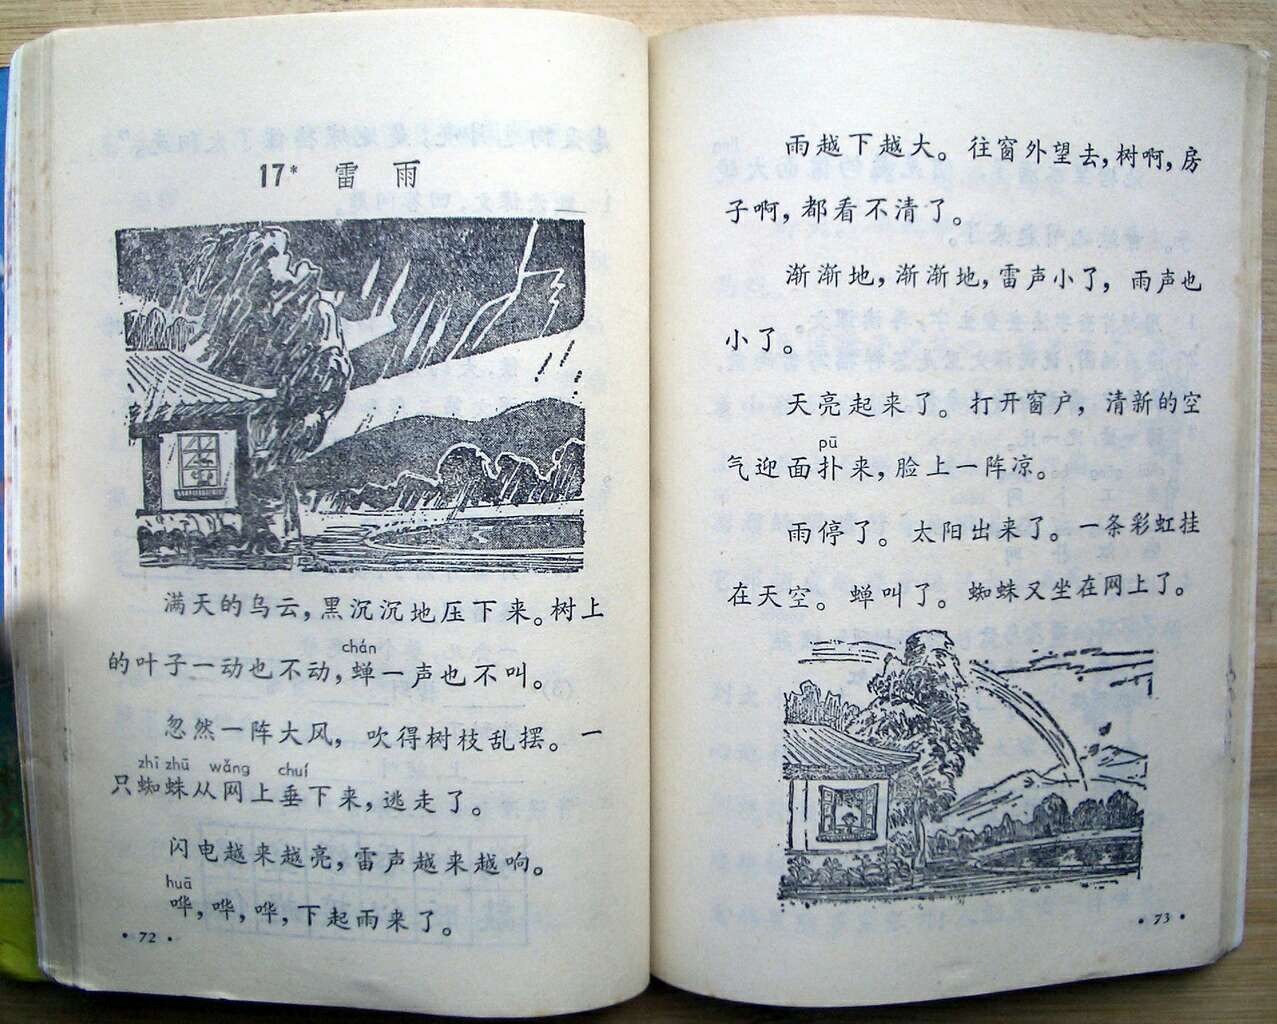 17* 雷雨
满天的乌云，黑沉沉地压下来。树上
chán
的叶子一动也不动，蝉一声也不叫。
忽然一阵大风，吹得树枝乱摆。一
zhī zhū wǎng chuí
只蜘蛛从网上垂下来，逃走了。
闪电越来越亮，雷声越来越响。
huā
哗，哗，哗，下起雨来了。
·72·
雨越下越大。往窗外望去，树啊，房
子啊，都看不清了。
渐渐地，渐渐地，雷声小了，雨声也
小了。
天亮起来了。打开窗户，清新的空
pū
气迎面扑来，脸上一阵凉。
雨停了。太阳出来了。一条彩虹挂
在天空。蝉叫了。蜘蛛又坐在网上了。
·73·